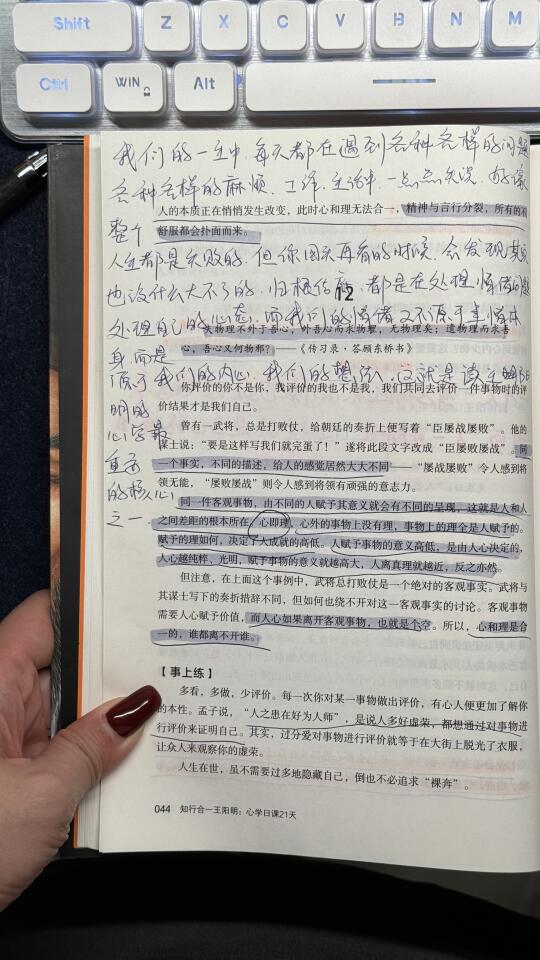 Shift
Z
X
C
V
B
N
M
Ctrl
WIN
Alt
我们的一生中,每天都在遇到各种各样的问题
各种各样的麻烦,工作,生活中,一点点失误,好像
人的本质正在悄悄发生改变,此时心和理无法合一,精神与言行分裂,所有的不
整个
舒服都会扑面而来。
人生都是失败的,但你回头再看的时候,会发现其实
也没什么大不了的,归根结底,都是在处理情绪问题
12
处理自己的心态,而我们的情绪又不源于事情本
夫物理不外于吾心,外吾心而求物理,无物理矣;遗物理而求吾
身,而是
心,吾心又何物邪?——《传习录·答顾东桥书》
源于我们的内心,我们的想法,这就是读王阳
你评价的你不是你,我评价的我也不是我,我们共同去评价一件事物时的评
明的
价结果才是我们自己。
心学最
曾有一武将,总是打败仗,给朝廷的奏折上便写着“臣屡战屡败”。他的
谋士说:“要是这样写我们就完蛋了!”遂将此段文字改成“臣屡败屡战”。同
重要
一个事实,不同的描述,给人的感觉居然大大不同——“屡战屡败”令人感到将
的核心
领无能,“屡败屡战”则令人感到将领有顽强的意志力。
之一
同一件客观事物,由不同的人赋予其意义就会有不同的呈现,这就是人和人
之间差距的根本所在,心即理,心外的事物上没有理,事物上的理全是人赋予的。
赋予的理如何,决定了大成就的高低。人赋予事物的意义高低,是由人心决定的,
人心越纯粹、光明,赋予事物的意义就越高大,人离真理就越近,反之亦然。
但注意,在上面这个事例中,武将总打败仗是一个绝对的客观事实。武将与
其谋士写下的奏折措辞不同,但如何也绕不开对这一客观事实的讨论。客观事物
需要人心赋予价值,而人心如果离开客观事物,也就是个空。所以,心和理是合
一的,谁都离不开谁。
【事上练】
多看,多做,少评价。每一次你对某一事物做出评价,有心人便更加了解你
的本性。孟子说,“人之患在好为人师”,是说人多好虚荣,都想通过对事物进
行评价来证明自己。其实,过分爱对事物进行评价就等于在大街上脱光了衣服,
让众人来观察你的虚荣。
人生在世,虽不需要过多地隐藏自己,倒也不必追求“裸奔”。
044 知行合一王阳明:心学日课21天